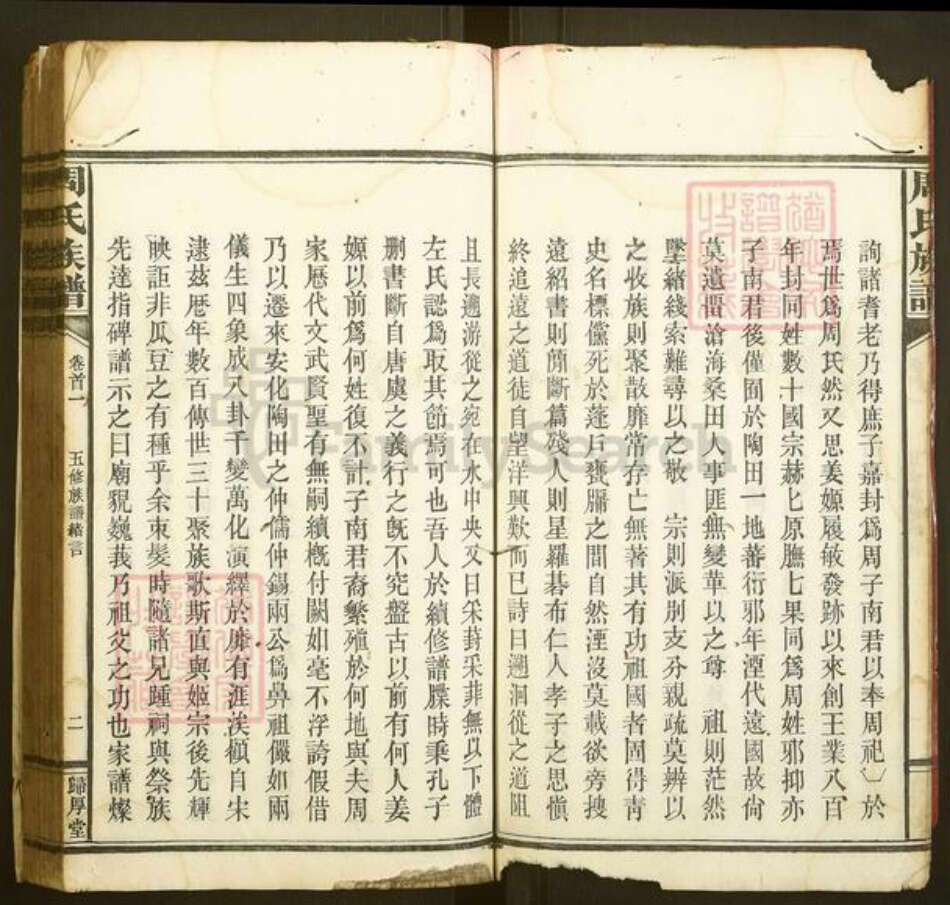 周氏族譜
詢諸耆老乃得庶子嘉封爲周子南君以奉周祀〕於
焉世爲周氏然又思姜嫄履敏發跡以來創王業八百
年封同姓數十國宗赫匕原膴匕果同爲周姓邪抑亦
子南君後僅囿於陶田一地蕃衍邪年湮代遠國故尙
莫遺畱滄海桑田人事匪無變革以之尊 祖則茫然
墜緒綫索難尋以之敬 宗則派別支分親疏莫辨以
之收族則聚散靡常存亡無著其有功祖國者固得靑
史名標儻死於蓬戶甕牖之間自然湮沒莫載欲旁搜
遠紹書則簡斷篇殘人則星羅碁布仁人孝子之思愼
終追遠之道徒自望洋興歎而已詩曰遡洄從之道阻
且長遡游從之宛在水中央又曰采葑采菲無以下體
左氏認爲取其節焉可也吾人於續修譜牒時秉孔子
刪書斷自唐虞之義行之旣不究盤古以前有何人姜
嫄以前爲何姓復不計子南君裔繁殖於何地與夫周
家厯代文武賢聖有無嗣續槪付闕如毫不浮誇假借
乃以遷來安化陶田之仲儒仲錫兩公爲鼻祖儼如兩
儀生四象成八卦千變萬化演繹於靡有涯涘顧自宋
逮茲厯年數百傳世三十聚族歌斯直與姬宗後先輝
映詎非瓜豆之有種乎余束髮時隨諸兄踵祠與祭族
先達指碑譜示之曰廟貌巍莪乃祖父之功也家譜燦
周氏族譜
卷首一
五修族譜緒言
二
歸厚堂
FamilySearch